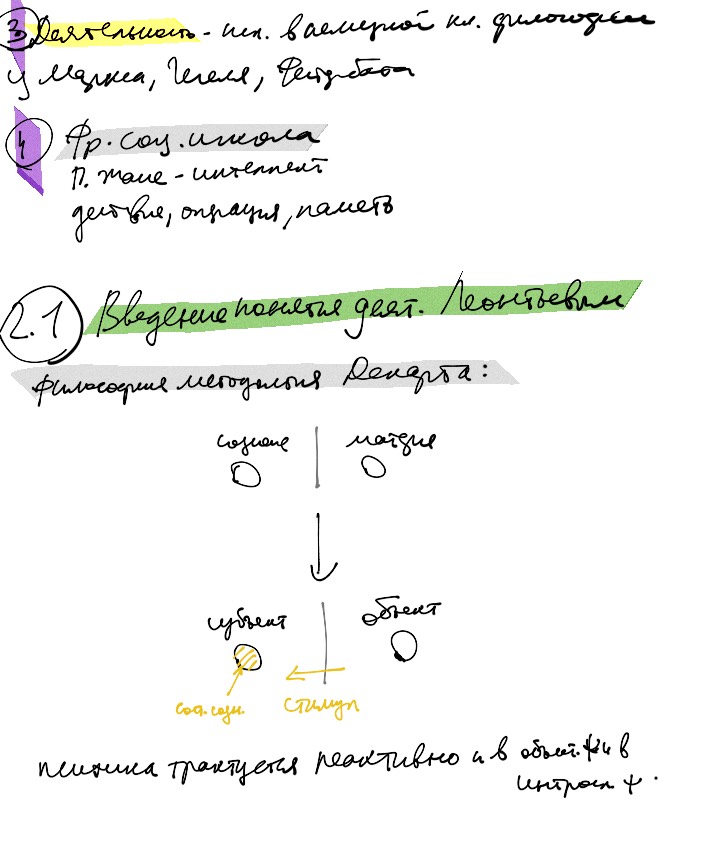 3 Деятельность - исп. в немецкой кл. философии
у Маркса, Гегеля, Фейербаха
4 Фр. соц. школа
П. Жане - интеллект
действие, операция, память
2.1 Введение понятия деят. Леонтьевым
Философия методология Декарта:
сознание | материя
субъект | объект
сод. созн. стимул
психика трактуется реактивно и в объект. ψ и в
интросп ψ.